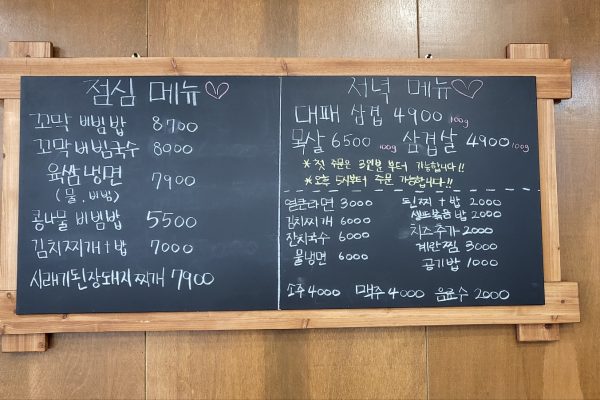 점심 메뉴
꼬막 비빔밥 8700
꼬막 비빔국수 8000
육쌈냉면 7900
(물. 비빔)
콩나물 비빔밥 5500
김치찌개+밥 7000
시래기된장돼지찌개 7900
저녁 메뉴
대패 삼겹 4900 100g
목살 6500 100g 삼겹살 4900 100g
※ 첫 주문은 3인분 부터 가능합니다!!
※ 오후 5시부터 주문 가능합니다!!
얼큰라면 3000
김치찌개 6000
잔치국수 6000
물냉면 6000
된찌 + 밥 2000
셀프볶음밥 2000
치즈추가 2000
계란찜 3000
공기밥 1000
소주 4000 맥주 4000 음료수 2000